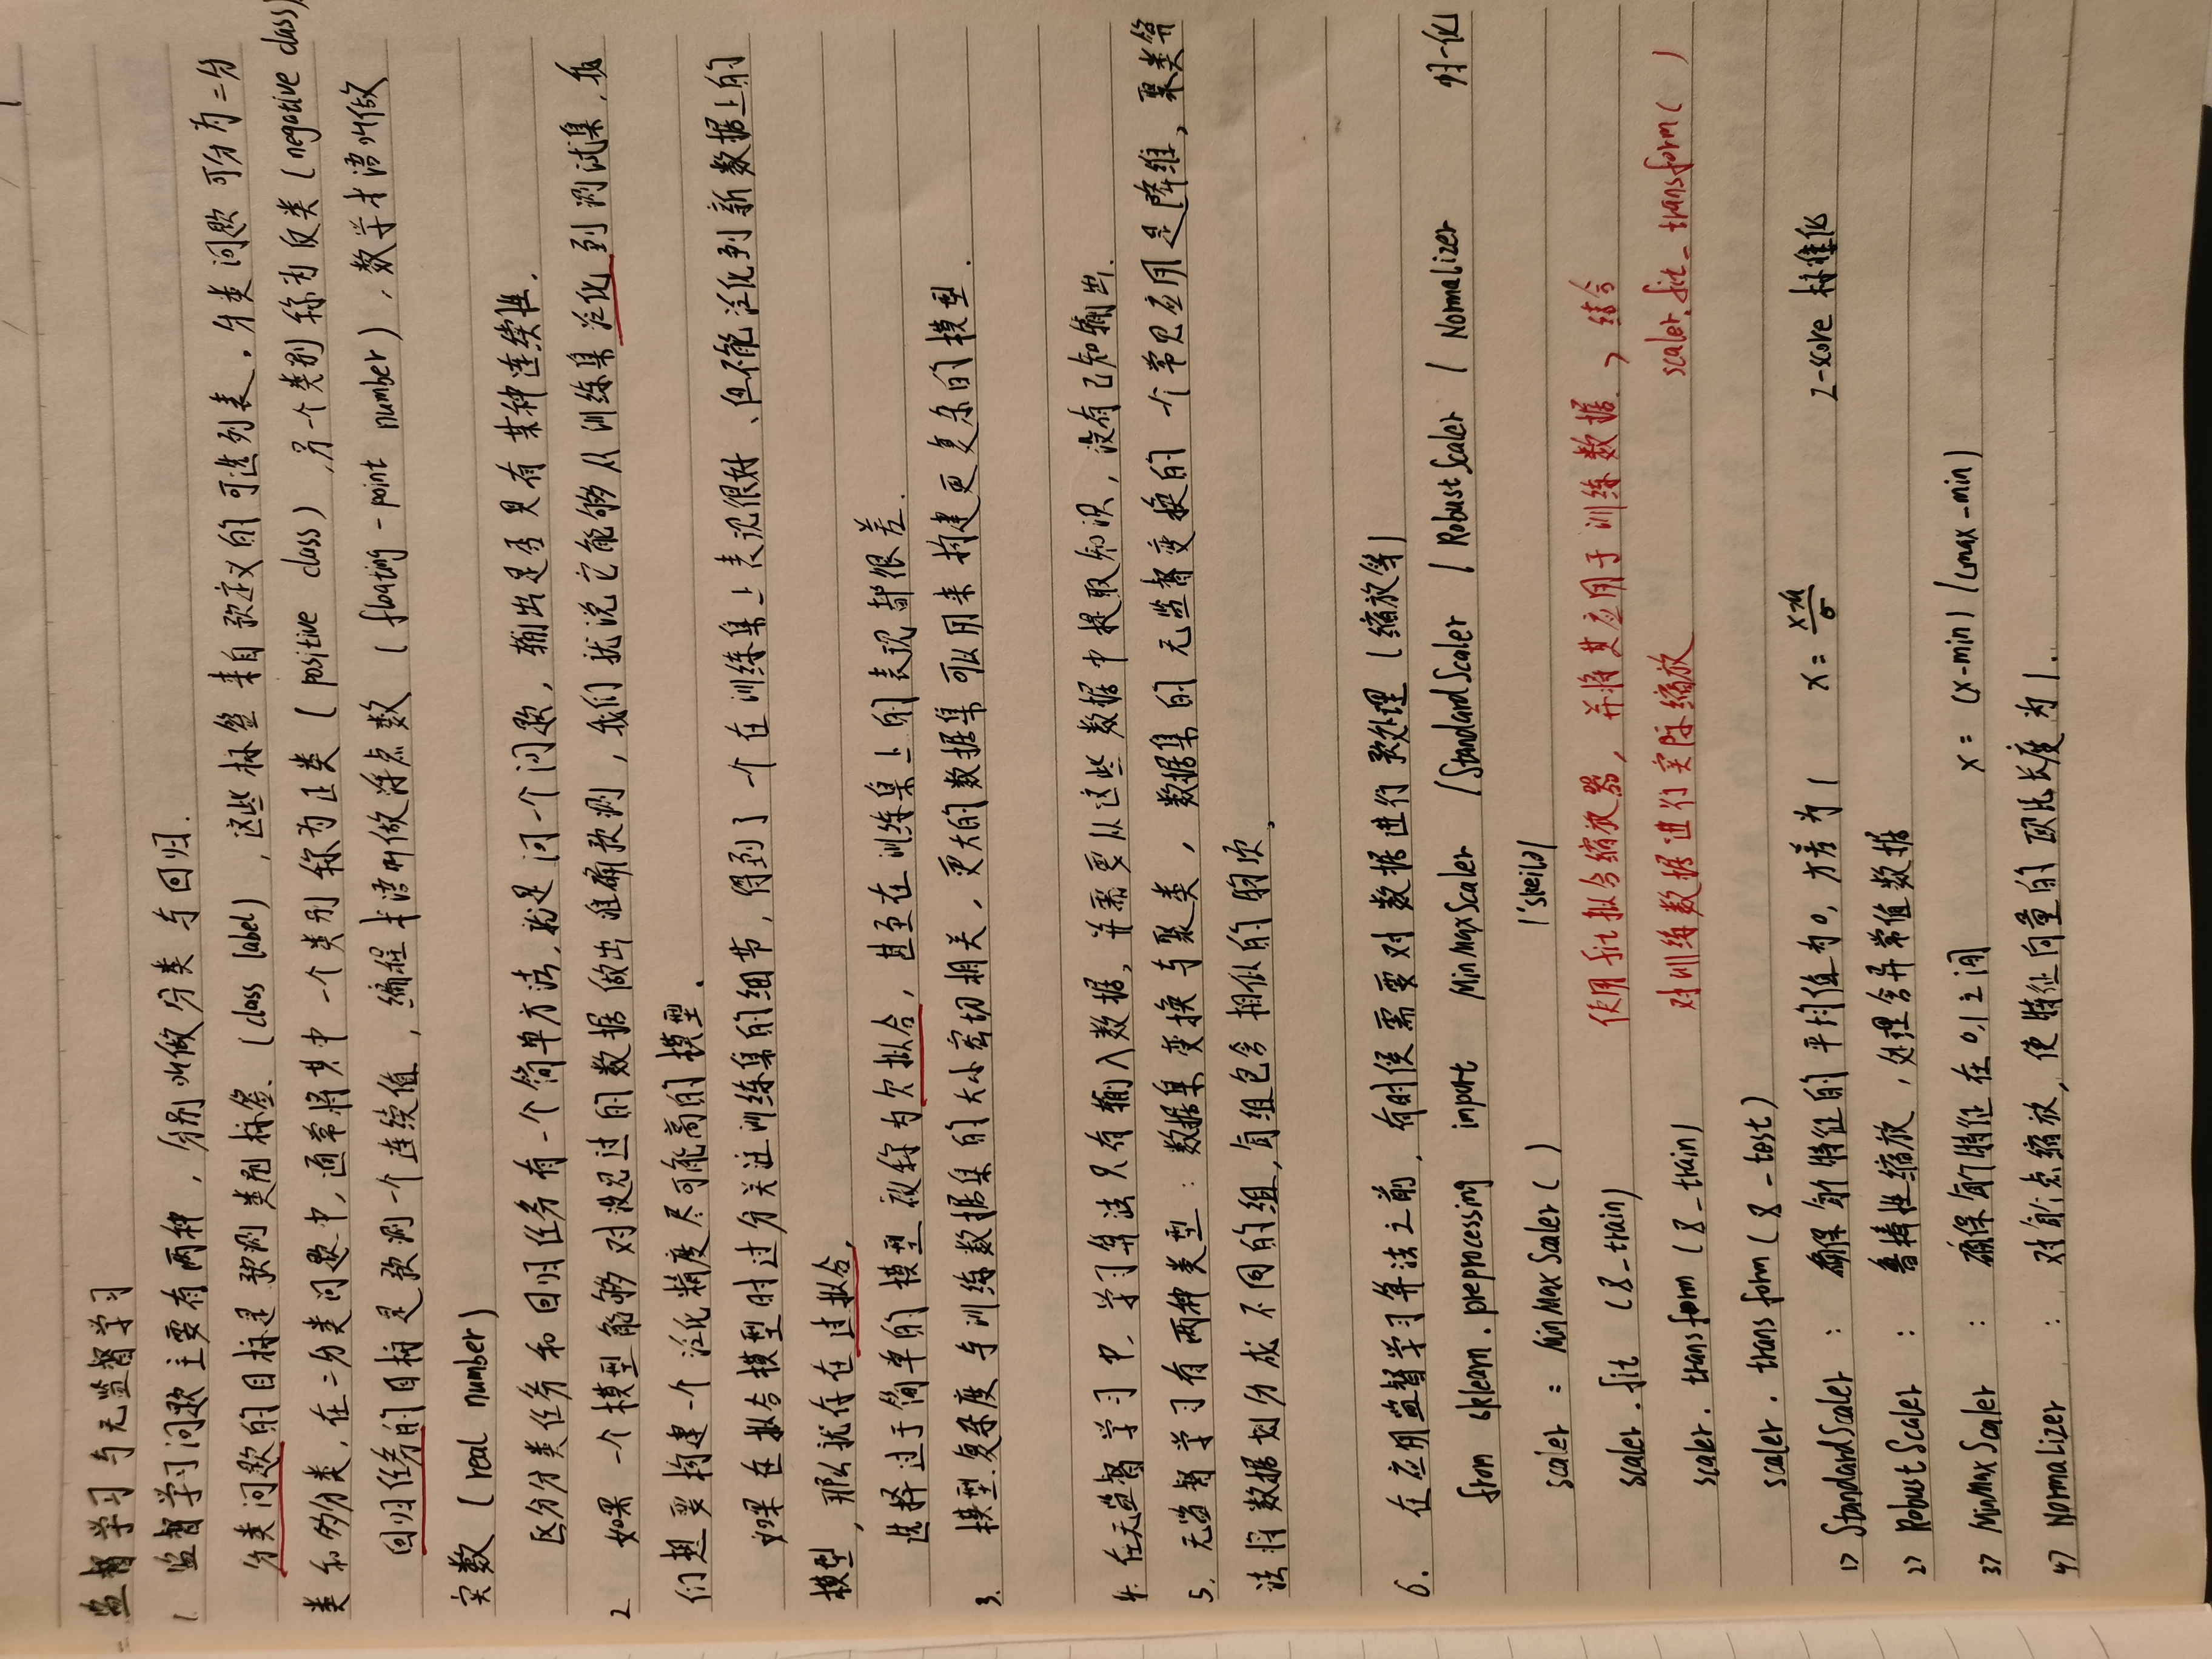 监督学习与无监督学习
1. 监督学习问题主要有两种，分别叫做分类与回归.
分类问题的目标是预测类别标签 (class label)，这些标签来自预定义的可选列表. 分类问题可分为二分
类和多分类，在二分类问题中，通常将其中一个类别称为正类 (positive class)，另一个类别称为反类 (negative class)
回归任务的目标是预测一个连续值，编程术语叫做浮点数 (floating-point number)，数学术语叫做
实数 (real number)
区分分类任务和回归任务有一个简单方法，就是问一个问题，输出是否具有某种连续性.
2 如果一个模型能够对没见过的数据做出准确预测，我们就说它能够从训练集泛化到测试集，我
们想要构建一个泛化精度尽可能高的模型.
如果在拟合模型时过分关注训练集的细节，得到了一个在训练集上表现很好、但不能泛化到新数据上的
模型，那么就存在过拟合，
选择过于简单的模型被称为欠拟合，甚至在训练集上的表现都很差.
3. 模型复杂度与训练数据集的大小密切相关，更大的数据集可以用来构建更复杂的模型.
4. 在无监督学习中，学习算法只有输入数据，并需要从这些数据中提取知识，没有已知输出.
5. 无监督学习有两种类型：数据集变换与聚类，数据集的无监督变换的一个常见应用是降维，聚类算
法将数据划分成不同的组，每组包含相似的物项.
6. 在应用监督学习算法之前，有时候需要对数据进行预处理 (缩放等)
from sklearn.preprocessing import MinMaxScaler / StandardScaler / RobustScaler / Normalizer 归一化
scaler = MinMaxScaler ( ) /'skeilə/
scaler.fit (X_train) 使用fit拟合缩放器，并将其应用于训练数据 > 结合
scaler.transform (X_train) 对训练数据进行实际缩放 scaler.fit_transform( )
scaler.transform (X_test)
1> StandardScaler : 确保每个特征的平均值为0，方差为1 x = (x-μ)/σ z-score 标准化
2> RobustScaler : 鲁棒性缩放，处理含异常值数据
3> MinMaxScaler : 确保每个特征在0,1之间 x = (x-min) / (max-min)
4> Normalizer : 对每个点缩放，使特征向量的欧氏长度为1.